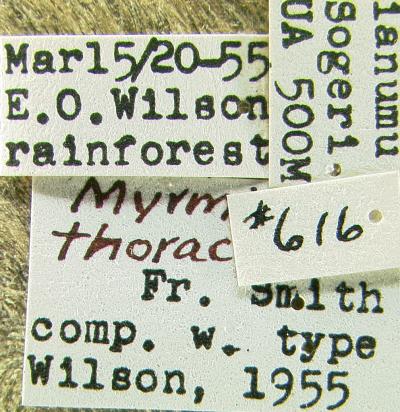 Mar15/20-55
E.O.Wilson
rainforest
lanumu
Soger1
UA 500M
Myrm
thorac
#616
Fr. Smith
comp. w. type
Wilson, 1955